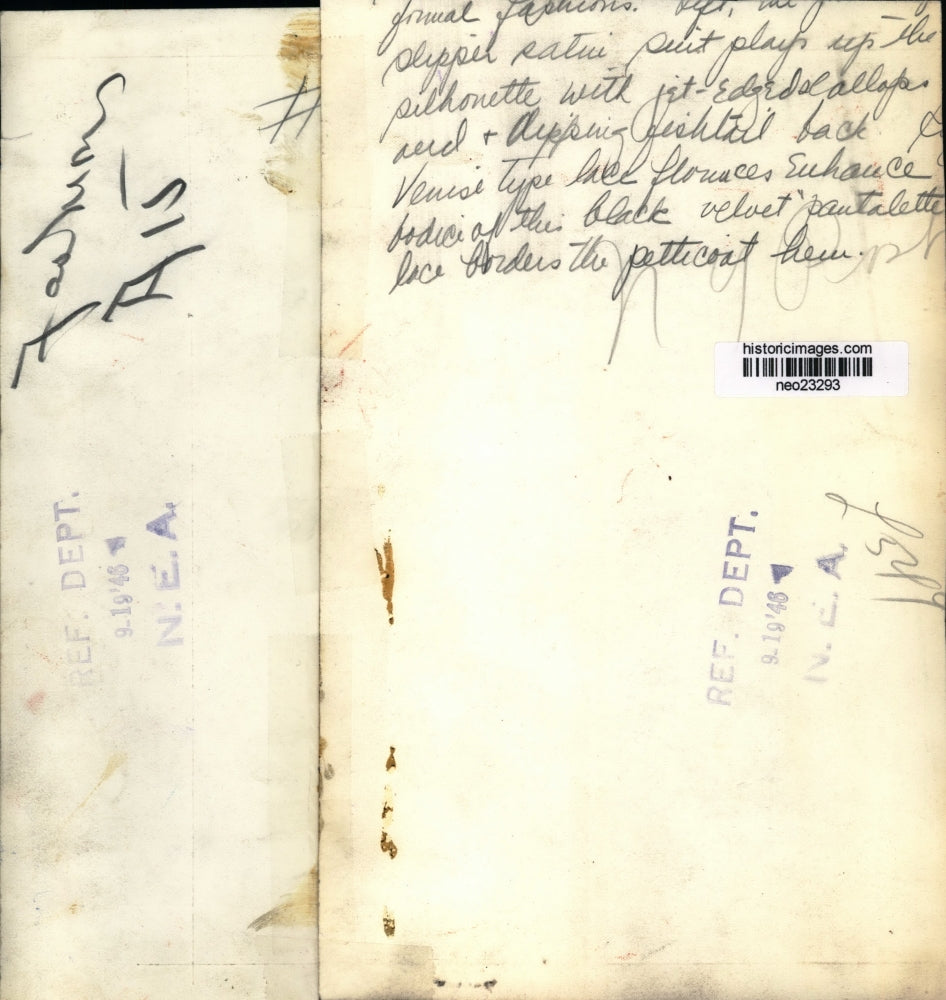 formal fashions. Left, the
slipper satin suit plays up the
silhouette with jet-edged scallops
and + dipping fishtail back &
Venise type lace flounces Enhance
bodice of this black velvet "pantalette
lace borders the petticoat hem.
historicimages.com
neo23293
REF. DEPT.
9-19'46
N. E. A.
Fashions
REF. DEPT.
9-19'46
N. E. A.